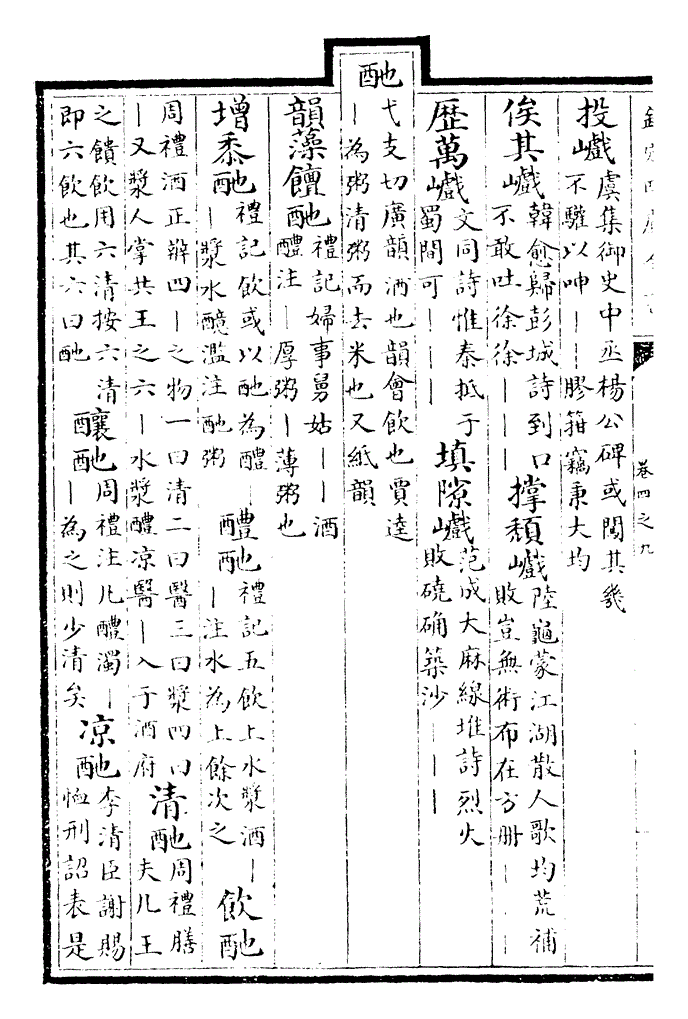 卷四之九
投巇 虞集御史中丞楊公碑或闖其幾
不驩以呻｜｜膠箝竊秉大均
俟其巇 韓愈歸彭城詩到口
不敢吐徐徐｜｜｜
撑頽巇 陸龜蒙江湖散人歌均荒補
敗豈無術布在方冊｜｜｜
歴萬巇 文同詩惟秦抵于
蜀間可｜｜｜
填隙巇 范成大麻線堆詩烈火
敗磽确築沙｜｜｜
酏
弋支切廣韻酒也韻會飲也賈逵
｜為粥清粥而去米也又紙韻
韻藻饘酏 禮記婦事舅姑｜｜酒
醴注｜厚粥｜薄粥也
增黍酏 禮記飲或以酏為醴｜
｜漿水醷濫注酏粥
醴酏 禮記五飲上水漿酒｜
｜注水為上餘次之
飲酏
周禮酒正辨四｜之物一曰清二曰醫三曰漿四曰
｜又漿人掌共王之六｜水漿醴凉醫｜入于酒府
清酏 周禮膳
夫凡王
之饋飲用六清按六清
即六飲也其六曰酏
釀酏 周禮注凡醴濁｜
｜為之則少清矣
凉酏 李清臣謝賜
恤刑詔表是